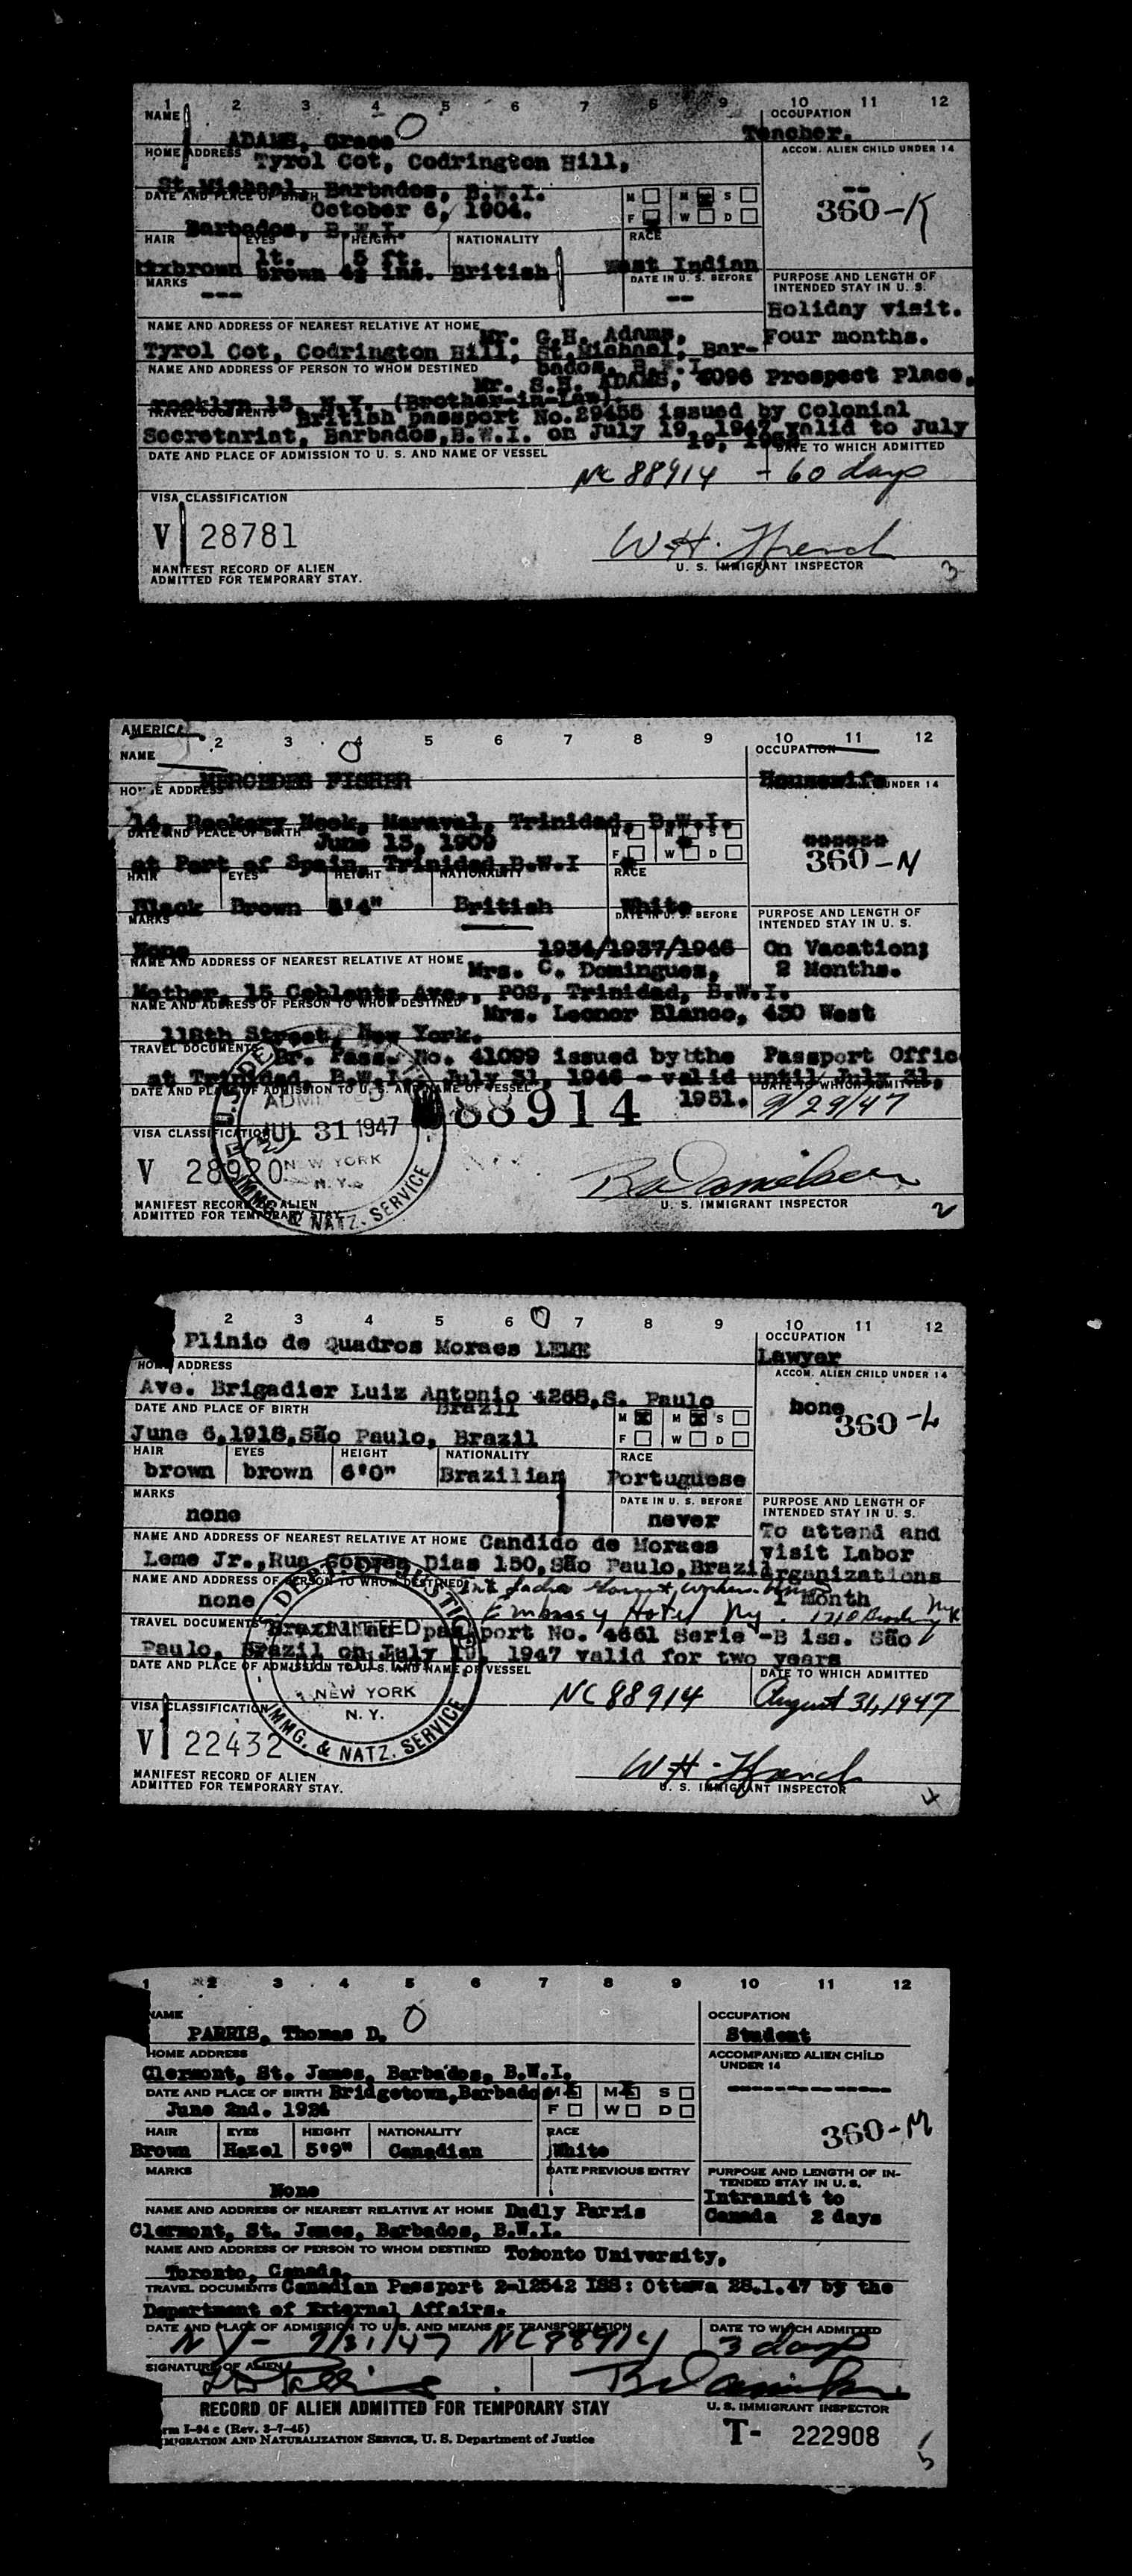 1 2 3 4 5 6 7 8 9 10 11 12
NAME OCCUPATION
ADAMS, Grace O Teacher.
HOME ADDRESS Tyrol Cot, Codrington Hill, ACCOM. ALIEN CHILD UNDER 14
St.Michael, Barbados, B.W.I. --
DATE AND PLACE OF BIRTH M M S
October 6, 1904. F W D 360-K
Barbados, B.W.I.
HAIR EYES HEIGHT NATIONALITY RACE
brown lt. brown 5 ft. 4½ ins. British West Indian
MARKS DATE IN U. S. BEFORE PURPOSE AND LENGTH OF
INTENDED STAY IN U. S.
--- -- Holiday visit.
NAME AND ADDRESS OF NEAREST RELATIVE AT HOME Mr. G.H. Adams, Four months.
Tyrol Cot, Codrington Hill, St.Michael, Bar-
bados, B.W.I.
NAME AND ADDRESS OF PERSON TO WHOM DESTINED
Mr. S.H. ADAMS, Prospect Place,
rooklyn 13, N.Y. (Brother-in-Law).
TRAVEL DOCUMENTS British passport No.29455 issued by Colonial
Secretariat, Barbados,B.W.I. on July 19, 1947 valid to July
DATE AND PLACE OF ADMISSION TO U. S. AND NAME OF VESSEL DATE TO WHICH ADMITTED
NC 88914 - 60 days
VISA CLASSIFICATION
V 28781
MANIFEST RECORD OF ALIEN U. S. IMMIGRANT INSPECTOR
ADMITTED FOR TEMPORARY STAY. 3
AMERICA
2 3 4 5 6 7 8 9 10 11 12
NAME O OCCUPATION
MERCEDES FISHER Housewife
HOME ADDRESS UNDER 14
14, Rookery Nook, Maraval, Trinidad, B.W.I.
DATE AND PLACE OF BIRTH June 13, 1909 M M S
at Port of Spain, Trinidad,B.W.I F W D 360-N
HAIR EYES HEIGHT NATIONALITY RACE
Black Brown 5'4" British White
MARKS DATE IN U. S. BEFORE PURPOSE AND LENGTH OF
INTENDED STAY IN U. S.
None 1934/1937/1946 On Vacation;
NAME AND ADDRESS OF NEAREST RELATIVE AT HOME Mrs. C. Domingues, 2 Months.
Mother, 15 Coblentz Ave., POS, Trinidad, B.W.I.
NAME AND ADDRESS OF PERSON TO WHOM DESTINED
Mrs. Leonor Blanco, 430 West
118th Street, New York.
TRAVEL DOCUMENTS Br. Pass. No. 41099 issued by the Passport Offic
at Trinidad, B.W.I. July 31, 1946 - valid until July 31,
DATE AND PLACE OF ADMISSION TO U. S. AND NAME OF VESSEL 1951. DATE TO WHICH ADMITTED
ADMITTED 88914 9/29/47
VISA CLASSIFICATION JUL 31 1947
V 28920 NEW YORK
N. Y.
IMMG. & NATZ. SERVICE
MANIFEST RECORD OF ALIEN U. S. IMMIGRANT INSPECTOR
ADMITTED FOR TEMPORARY STAY 2
2 3 4 5 6 7 8 9 10 11 12
OCCUPATION
Plinio de Quadros Moraes LEME Lawyer
HOME ADDRESS ACCOM. ALIEN CHILD UNDER 14
Ave. Brigadier Luiz Antonio 4268,S. Paulo
Brazil
DATE AND PLACE OF BIRTH M M S 360-L
June 6,1918,São Paulo, Brazil F W D
HAIR EYES HEIGHT NATIONALITY RACE
brown brown 6'0" Brazilian Portuguese
MARKS DATE IN U. S. BEFORE PURPOSE AND LENGTH OF
INTENDED STAY IN U. S.
none never To attend and
NAME AND ADDRESS OF NEAREST RELATIVE AT HOME Candido de Moraes visit Labor
Leme Jr.,Rua Dias 150,São Paulo,Brazil Organizations
NAME AND ADDRESS OF PERSON TO WHOM DESTINED
none 1 Month
Embassy Hotel Ny.
TRAVEL DOCUMENTS Brazilian passport No. 4661 Serie -B iss. São
Paulo, Brazil on July 1947 valid for two years
DATE AND PLACE OF ADMISSION TO U. S. AND NAME OF VESSEL DATE TO WHICH ADMITTED
DEPT. OF JUSTICE
ADMITTED
NEW YORK NC 88914 August 31, 1947
N. Y.
VISA CLASSIFICATION
V 22432
IMMG. & NATZ. SERVICE
MANIFEST RECORD OF ALIEN U. S. IMMIGRANT INSPECTOR
ADMITTED FOR TEMPORARY STAY. 4
1 2 3 4 5 6 7 8 9 10 11 12
NAME O OCCUPATION
PARRIS, Thomas D. Student
HOME ADDRESS ACCOMPANIED ALIEN CHILD
UNDER 14
Clermont, St. James, Barbados, B.W.I.
DATE AND PLACE OF BIRTH Bridgetown,Barbados M M S
June 2nd. 1924 F W D
HAIR EYES HEIGHT NATIONALITY RACE 360-M
Brown Hazel 5'9" Canadian White
MARKS DATE PREVIOUS ENTRY PURPOSE AND LENGTH OF IN-
TENDED STAY IN U. S.
None Intransit to
NAME AND ADDRESS OF NEAREST RELATIVE AT HOME Dudly Parris Canada 2 days
Clermont, St. James, Barbados, B.W.I.
NAME AND ADDRESS OF PERSON TO WHOM DESTINED Toronto University,
Toronto, Canada.
TRAVEL DOCUMENTS Canadian Passport 2-12542 ISS: Ottawa 25.1.47 by the
Department of External Affairs.
DATE AND PLACE OF ADMISSION TO U. S. AND MEANS OF TRANSPORTATION DATE TO WHICH ADMITTED
NY- 7/31/47 NC88914 3 days
SIGNATURE OF ALIEN
RECORD OF ALIEN ADMITTED FOR TEMPORARY STAY U. S. IMMIGRANT INSPECTOR
rm I-94 c (Rev. 3-7-45) T- 222908
MIGRATION AND NATURALIZATION SERVICE, U. S. Department of Justice 5